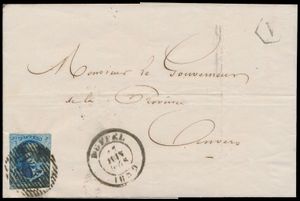 1
Monsieur le Gouverneur
de la Province
Anvers
DUFFEL
JUIN
1859